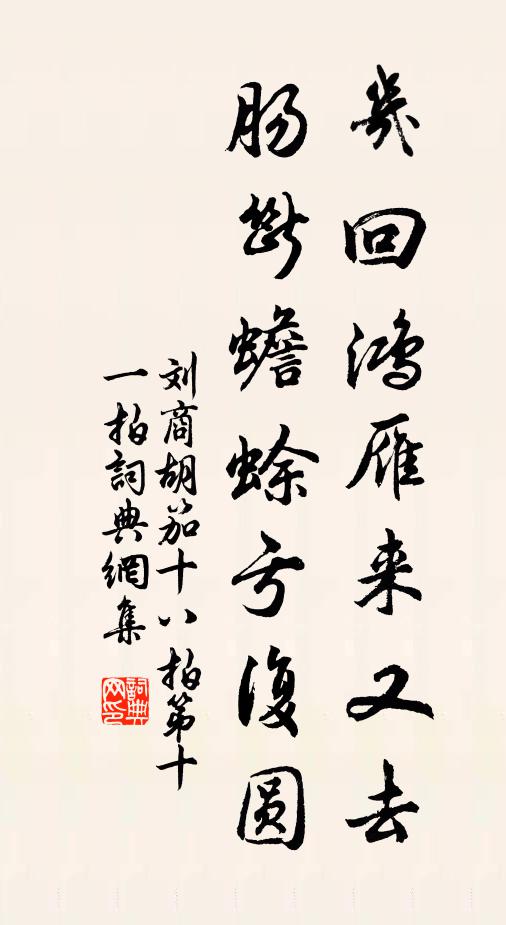 幾回鴻雁来又去
肠斷蟾蜍亏復圆
刘商胡笳十八拍第十
一拍詞典網集
詞典网印